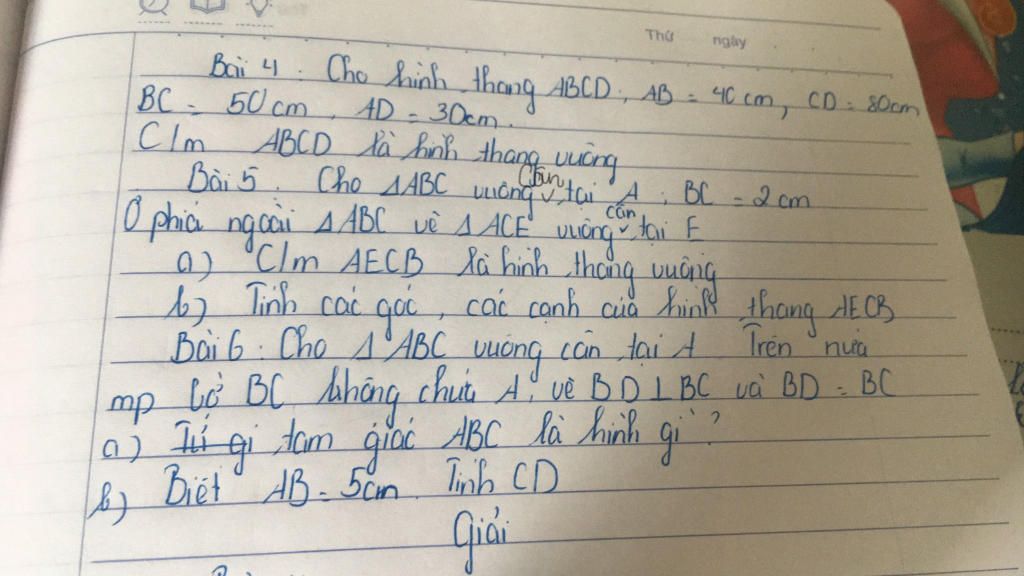 Thứ ngày
Bài 4. Cho hình thang ABCD, AB = 40 cm, CD = 80cm
BC = 50 cm, AD = 30cm.
C/m ABCD là hình thang vuông
Bài 5. Cho ΔABC vuông cân tại A, BC = 2 cm
Ở phía ngoài ΔABC vẽ ΔACE vuông cân tại E
a) C/m AECB là hình thang vuông
b) Tính các góc, các cạnh của hình thang AECB
Bài 6. Cho ΔABC vuông cân tại A Trên nửa
mp bờ BC không chứa A, vẽ BD⊥BC và BD = BC
a) Tứ gi tam giác ABC là hình gì?
b) Biết AB = 5cm. Tính CD
Giải